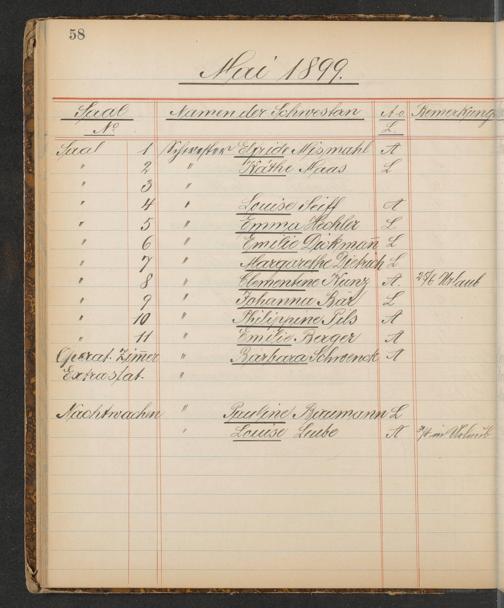 58
Mai 1899.
Saal Namen der Schwestern A o. Bemerkung
No L
Saal 1 Schwester Elfride Mismahl A
" 2 " Käthe Maas L
" 3 "
" 4 " Louise Seiff A
" 5 " Emma Hechler L
" 6 " Emilie Dickmañ L
" 7 " Margarethe Dietrich L
" 8 " Clementine Kunz A. Urlaub
" 9 " Johanna Bär L
" 10 " Philippine Pils A
" 11 " Emilie Berger A
Operat. Zimer " Barbara Schwenck A
Extrastat. "
Nachtwachn " Pauline Baumann L
" Louise Leube A in Urlaub